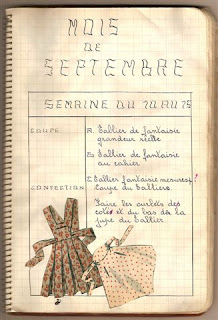 MOIS
DE
SEPTEMBRE
SEMAINE DU 20 AU 25
COUPE
A. Tablier de fantaisie
grandeur réelle
B. Tablier de fantaisie
au cahier
CONFECTION
Tablier fantaisie mesures
Coupe du tablier
Faire les ourlets des
côtés et du bas de la
jupe du tablier